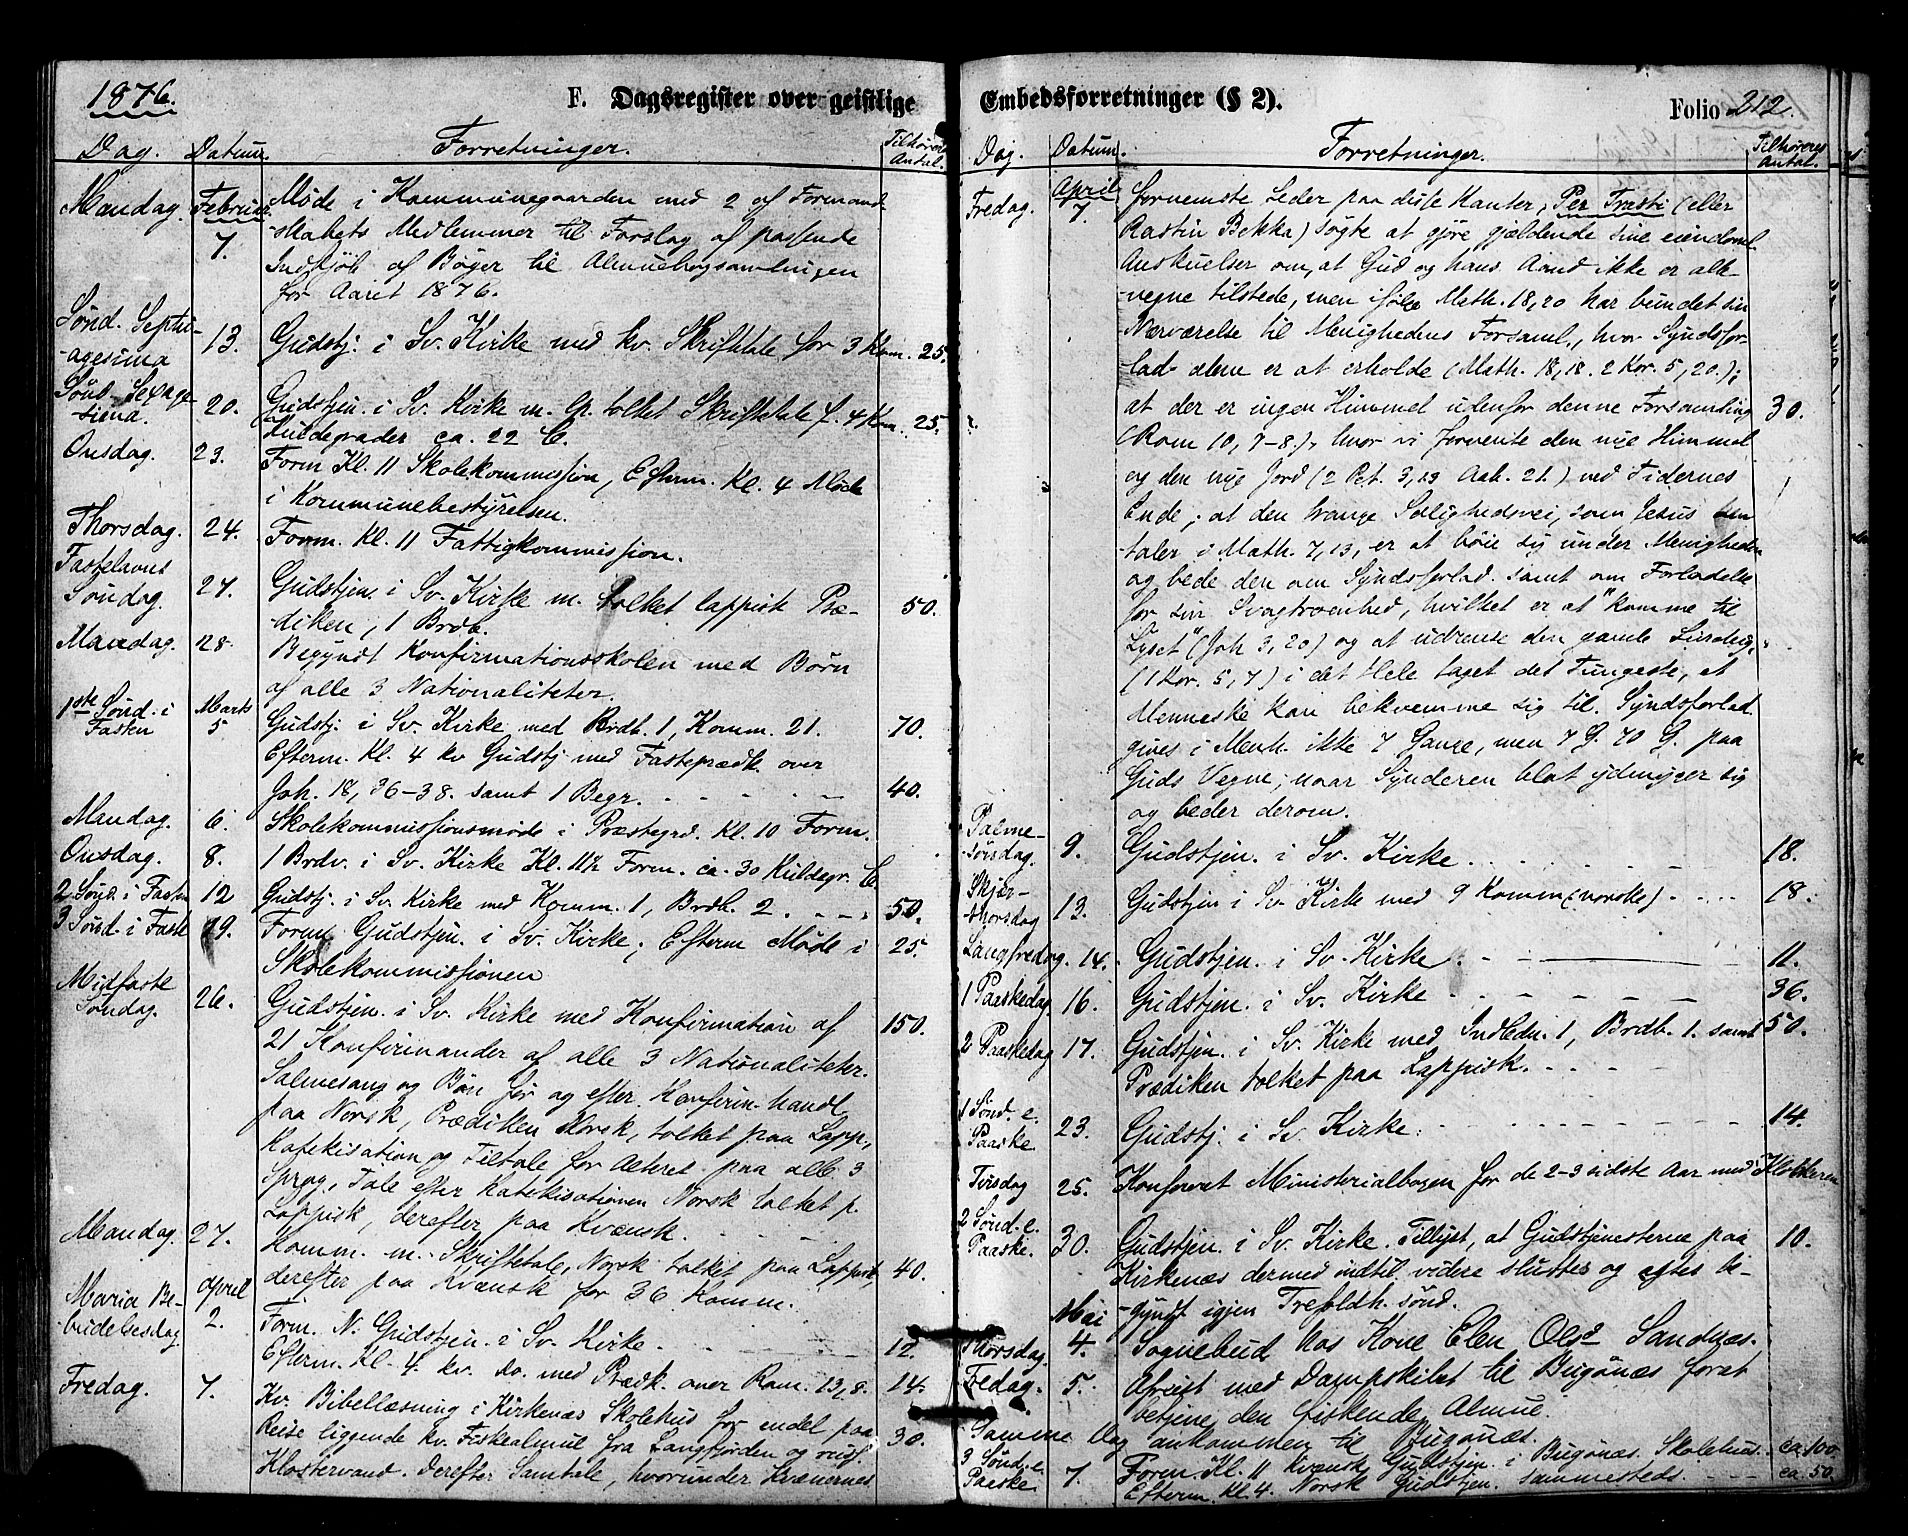 1876.
F. Dagsregister over geistlige
Dag. Datum. Forretninger. Tilhørere Antal.
Mandag. Februar 7. Møde i Kommunegaarden med 2 af Formand-
-skabets Medlemmer til Forslag af passende
Indkjøb af Bøger til Almuebogsamlingen
for Aaret 1876.
Sønd. Septu-
-agesima 13. Gudstj. i Sv. Kirke med kv. Skriftetale for 3 Kom. 25.
Sønd. Sexage-
sima. 20. Gudstjen. i Sv. Kirke m. lp. tolket Skriftetale f. 4 Kom. 25.
Kuldegrader ca. 22 C.
Onsdag. 23. Form Kl. 11 Skolekommission, Efterm. Kl. 4 Møde
i Kommunebestyrelsen.
Thorsdag. 24. Form. Kl. 11 Fattigkommission.
Fastelavns
Søndag. 27. Gudstjen. i Sv. Kirke m. tolket lappisk Præ- 50.
diken, 1 Brdb.
Mandag. 28. Begyndt Konfirmationsskolen med Børn
af alle 3 Nationaliteter.
1ste Sønd. i
Fasten Marts 5 Gudstj. i Sv. Kirke med Brdb. 1, Komm. 21. 70.
Efterm. Kl. 4 kv Gudstj med Fasteprædk. over
Joh. 18, 36-38. samt 1 Begr. 40.
Mandag. 6. Skolekommissionsmøde i Præstegrd. Kl. 10 Form.
Onsdag. 8. 1 Brdv. i Sv. Kirke Kl. 11½ Form. ca. 30 Kuldegr. C.
2 Sønd. i Fasten 12 Gudstj. i Sv. Kirke med Komm. 1, Brdb. 2. 50.
3 Sønd. i Faste 19. Form Gudstjen. i Sv. Kirke; Efterm Møde i 25.
Skolekommissionen
Midfaste
Søndag. 26. Gudstjen. i Sv. Kirke med Konfirmation af 150.
21 Konfirmander af alle 3 Nationaliteter.
Salmesang og Bøn før og efter Konfirm. handl
paa Norsk, Prædiken Norsk, tolket paa Lapp.,
Katekisation og Tiltale for Alteret paa alle 3
Sprog, Tale efter Katekisationen Norsk tolket p.
Lappisk, derefter paa Kvænsk.
Mandag. 27. Komm. m. Skriftetale, Norsk tolket paa Lappisk 40.
derefter paa Kvænsk for 36 Komm.
Maria Be-
budelsesdag April 2. Form. N. Gudstjen. i Sv. Kirke. 12.
Efterm. Kl. 4. kv. do. med Prædk. over Rom. 13, 8. 14.
Fredag. 7. Kv. Bibellæsning i Kirkenæs Skolehus for endel paa
Reise liggende kv. Fiskealmue fra Langfjorden og 30.
Klostervand. Derefter Samtale, hvorunder Kvænernes
Embedsforretninger (§ 2).
Folio 212.
Dag. Datum. Forretninger. Tilhøreres Antal.
Fredag. April 7. fornemste Leder paa disse Kanter, Per Trasti (eller
Rastin Bekka) søgte at gjøre gjældende sine eiendoml.
Anskuelser om, at Gud og hans Aand ikke er alle-
-vegne tilstede, men ifølge Math. 18, 20 har bundet sin
Nærværelse til Menighedens Forsaml., hvor Syndsfor-
lad. alene er at erholde (Math. 18, 18. 2 Kor. 5, 20.);
at der er ingen Himmel udenfor denne Forsamling 30.
(Rom 10, 7-8.), hvor vi forvente den nye Himmel
og den nye Jord (2 Pet. 3, 13 Aab. 21.) ved Tidernes
Ende; at den trange Salighedsvei, som Jesus om
taler i Math. 7, 13, er at bøie sig under Menigheden
og bede den om Syndsforlad. samt om Forladelse
for sin Svagtroenhed, hvilket er at "komme til
Lyset" (Joh 3, 20) og at udrense den gamle Surdeig,
(1 Kor. 5, 7) i det Hele taget det Tungeste, at
Menneske kan bekvemme sig til. Syndsforlad.
gives i Menh. ikke 7 Gange, men 7 G. 70 G. paa
Guds Vegne, naar Synderen blot ydmyger sig
og beder derom.
Palme-
søndag. 9. Gudstjen. i Sv. Kirke 18.
Skjær-
thorsdag 13. Gudstjen i Sv. Kirke med 9 Komm (norske) 18.
Langfredag. 14. Gudstjen. i Sv. Kirke. 11.
1 Paaskedag 16. Gudstjen. i Sv. Kirke 36.
2 Paaskedag 17. Gudstjen. i Sv. Kirke med Indledn. 1, Brdb. 1. samt 50.
Prædiken tolket paa Lappisk.
1 Sønd. e.
Paaske 23. Gudstj. i Sv. Kirke. 14.
Tirsdag 25. Konfereret Ministerialbogen for de 2-3 sidste Aar med Klokkeren
2 Sønd. e.
Paaske. 30. Gudstjen. i Sv. Kirke. Tillyst, at Gudstjenesterne paa 10.
Kirkenæs dermed indtil videre slutter og efter be-
-gyndt igjen Trefoldh. sønd.
Thorsdag Mai 4. Sognebud hos Kone Elen Olsd Sandnæs.
Fredag. 5. Afreist med Dampskibet til Bugønæs forat
betjene den fiskende Almue.
Samme Dag ankommen til Bugønæs.
3 Sønd. e.
Paaske 7. Form Kl. 11 Kvænsk Gudstjen. i Bugønæs Skolehus. ca. 100
Efterm. Kl. 4. Norsk Gudstjen. sammesteds. ca. 50.